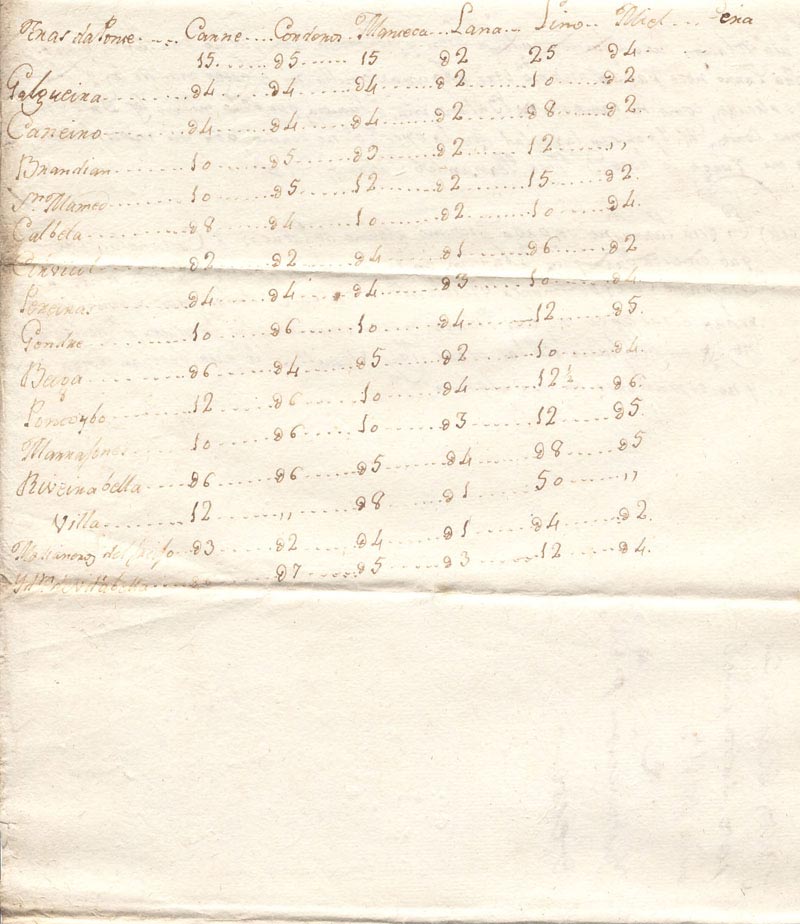 Tras da Ponte Carne Corderos Manteca Lana Lino Miel Cera
15 05 15 02 25 04
Falgueira 04 04 04 02 10 02
Caneiro 04 04 04 02 08 02
Brandian 10 05 09 02 12 ,,
Sn. Mamed 10 05 12 02 15 02
Calbela 08 04 10 02 10 04
02 02 04 01 06 02
Pereiras 04 04 04 03 10 04
Gondre 10 06 10 04 12 05
Bega 06 04 05 02 10 04
Poncoybo 12 06 10 04 12½ 06
Marrasones 10 06 10 03 12 05
Riveirabella 06 06 05 04 08 05
Villa 12 ,, 08 01 50 ,,
03 02 04 01 04 02
07 05 03 12 04